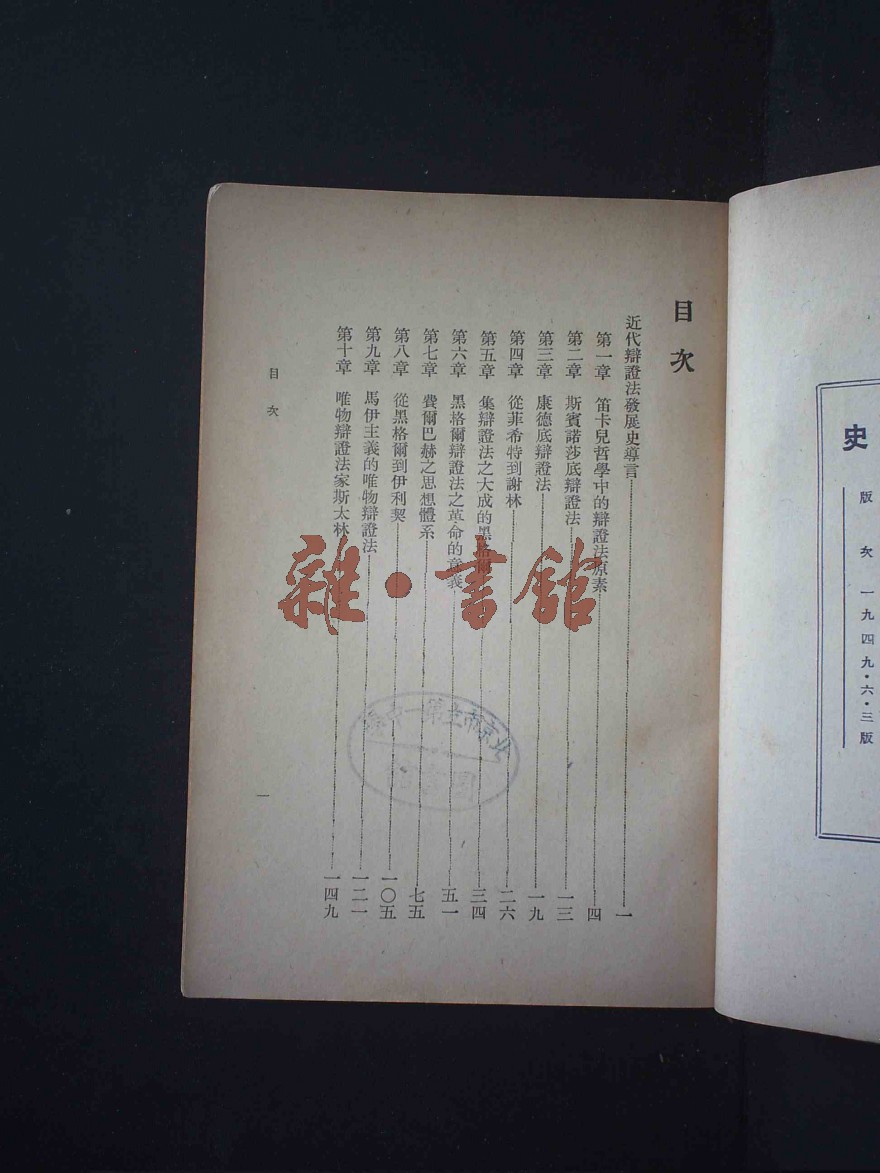 史
版次 一九四九・六・三版
目次
近代辯證法發展史導言 一
第一章 笛卡兒哲學中的辯證法原素 四
第二章 斯賓諾莎底辯證法 一三
第三章 康德底辯證法 一九
第四章 從菲希特到謝林 二六
第五章 集辯證法之大成的黑格爾 三四
第六章 黑格爾辯證法之革命的意義 五一
第七章 費爾巴赫之思想體系 七五
第八章 從黑格爾到伊利契 一〇五
第九章 馬伊主義的唯物辯證法 一二一
第十章 唯物辯證法家斯太林 一四九
目次
一
雜・書館
北京市立第一中學
圖書館